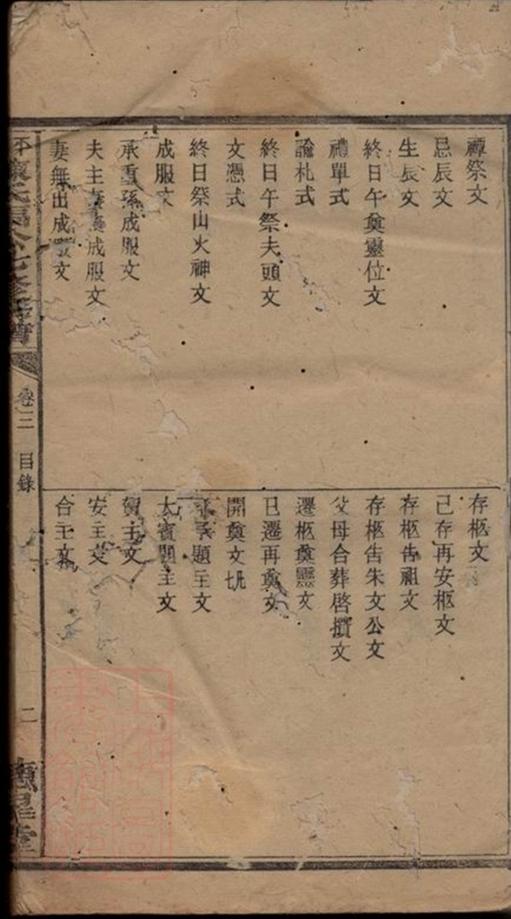 禫祭文
忌辰文
生辰文
終日午奠靈位文
禮單式
論札式
終日午祭夫頭文
文憑式
終日祭山火神文
成服文
承重孫成服文
夫主妻喪成服文
妻無出成服文
存柩文
己存再安柩文
存柩告祖文
存柩告朱文公文
父母合葬啓攢文
遷柩奠靈文
已遷再奠文
開奠文
題主文
大賓題主文
賀主文
安主文
合主文
卷三 目錄
二